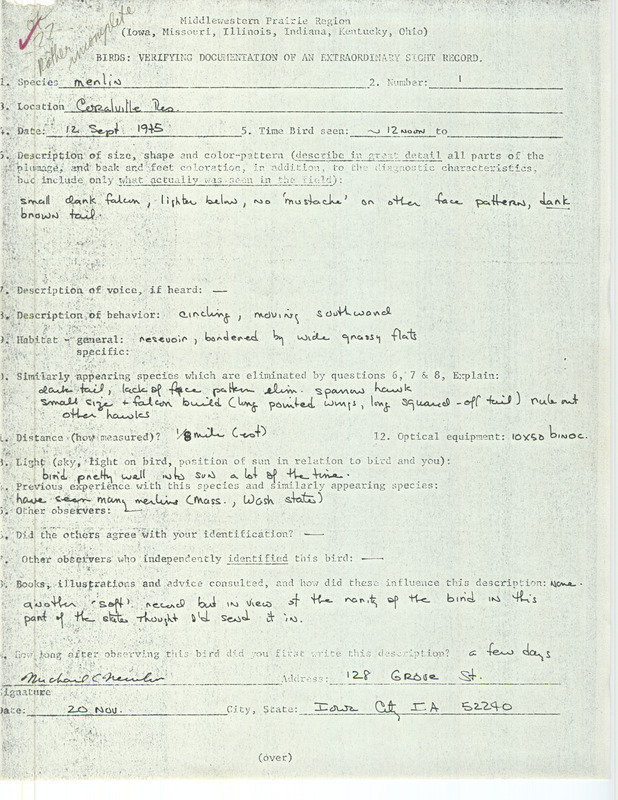 rather incomplete
Middlewestern Prairie Region
(Iowa, Missouri, Illinois, Indiana, Kentucky, Ohio)
BIRDS: VERIFYING DOCUMENTATION OF AN EXTRAORDINARY SIGHT RECORD.
1. Species merlin 2. Number: 1
3. Location Coralville Res.
4. Date: 12 Sept 1975 5. Time Bird seen: ~ 12 noon to
6. Description of size, shape and color-pattern (describe in great detail all parts of the
plumage, and beak and feet coloration, in addition, to the diagnostic characteristics,
but include only what actually was seen in the field):
small dark falcon, lighter below, no 'mustache' or other face pattern, dark
brown tail.
7. Description of voice, if heard: —
8. Description of behavior: circling, moving southward
9. Habitat - general: resevoir, bordered by wide grassy flats
specific:
0. Similarly appearing species which are eliminated by questions 6, 7 & 8, Explain:
dark tail, lack of face pattern elim. sparrow hawk
small size + falcon build (long pointed wings, long squared-off tail) rule out
other hawks
1. Distance (how measured)? 1/8 mile (est) 12. Optical equipment: 10x50 binoc.
3. Light (sky, light on bird, position of sun in relation to bird and you):
bird pretty well into sun a lot of the time.
4. Previous experience with this species and similarly appearing species:
have seen many merlins (Mass., Wash state)
5. Other observers: —
6. Did the others agree with your identification? —
7. Other observers who independently identified this bird: —
8. Books, illustrations and advice consulted, and how did these influence this description: none.
another 'soft' record but in view of the rarity of the bird in this
part of the states thought I'd send it in.
. How long after observing this bird did you first write this description? a few days
Michael C Newlon Address: 128 Grove St.
Signature
Date: 20 Nov. City, State: Iowa City IA 52240
(over)